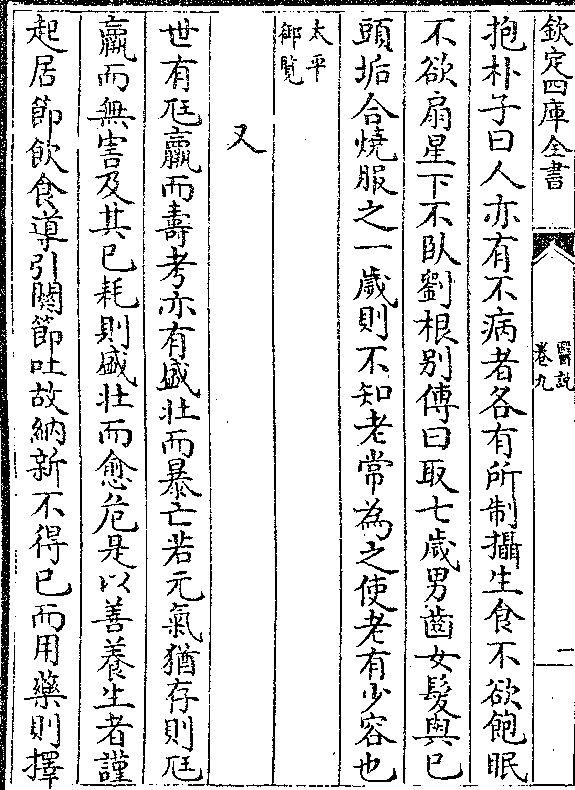 欽定四庫全書
醫說
卷九
二
抱朴子曰人亦有不病者各有所制攝生食不欲飽眠
不欲扇星下不臥劉根别傳曰取七歲男齒女髮與已
頭垢合燒服之一歲則不知老常為之使老有少容也
太平
御覧
又
世有尫羸而壽考亦有盛壯而暴亡若元氣猶存則尫
羸而無害及其已耗則盛壯而愈危是以善養生者謹
起居節飲食導引闗節吐故納新不得已而用藥則擇